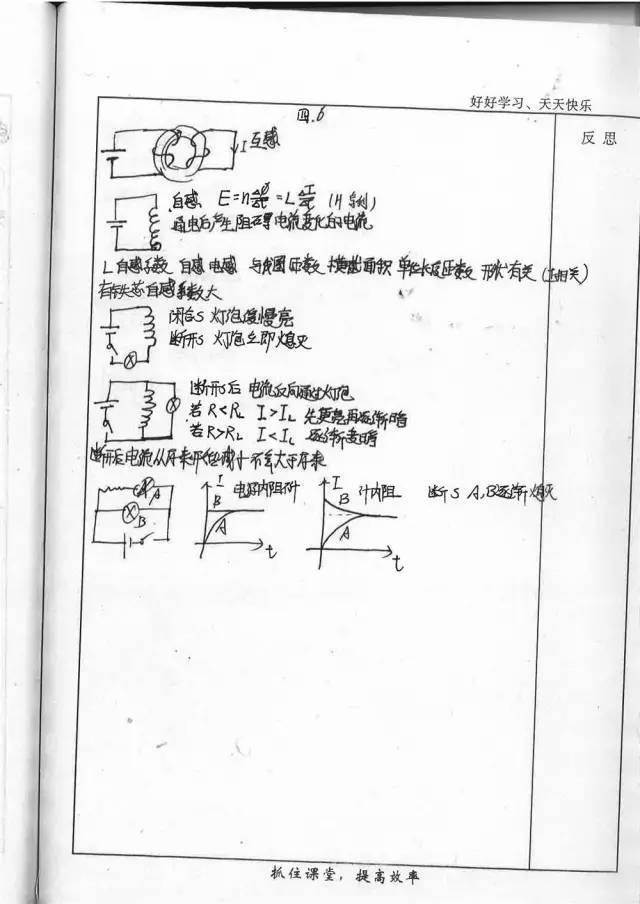 好好学习、天天快乐
四.6
反思
I 互感
自感 E=n ΔΦ/Δt = L ΔI/Δt (H 亨利)
通电后产生阻碍电流变化的电流
L 自感系数 自感 电感 与线圈匝数 横截面积 单位长度匝数 形状有关 (正相关)
有铁芯自感系数大
闭合S 灯泡慢慢亮
断开S 灯泡立即熄灭
断开S后 电流反向通过灯泡
若 R<RL I>IL 先更亮再逐渐暗
若 R>RL I<IL 逐渐变暗
断开后电流从开始 减小 不会大于
A
B
I
B 内阻不计
A
t
I
B 计内阻
A
t
断S A,B逐渐熄灭
抓住课堂，提高效率